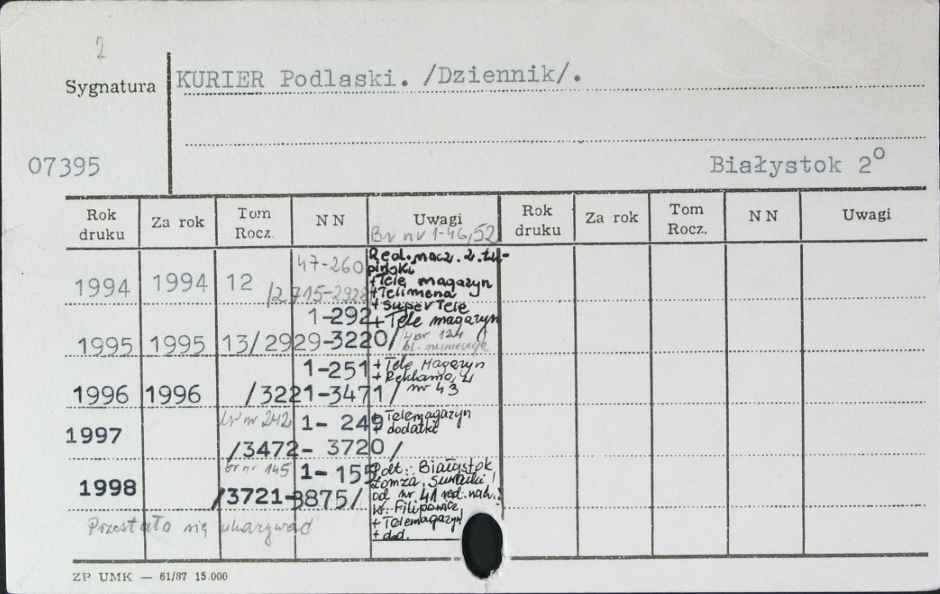 2
Sygnatura KURIER Podlaski. /Dziennik/.
07395 Białystok 2°
Rok druku Za rok Tom Rocz. N N Uwagi Rok druku Za rok Tom Rocz. N N Uwagi
Br nr 1-46, 52
47-260 Red. nacz. Z. Łu-
piński
1994 1994 12 + Tele magazyn
/2715-2928 + Telimena
+ Super Tele
1-292 + Tele magazyn
1995 1995 13/2929-3220/ nr 124
1-251 + Tele Magazyn
+ Reklama z
1996 1996 /3221-3471/ nr 43
Br nr 242 1- 249 + Telemagazyn
1997 + dodatki
/3472- 3720 /
br nr 145 1- 155 Podt. Białystok
1998 Łomża, Suwałki
/3721-3875/ od nr 41 red. nacz.
W. Filipowicz
Przestało się ukazywać + Telemagazyn
+ dod.
ZP UMK — 61/87 15.000